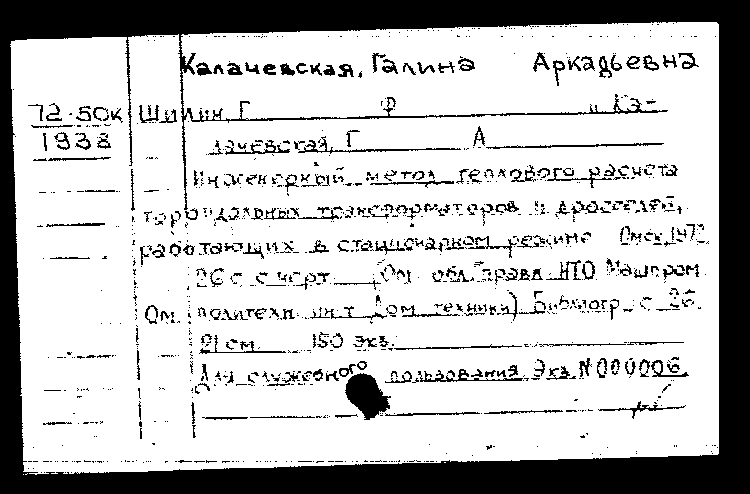 Калачевская, Галина Аркадьевна
72-50к Шилин, Г Ф и Ка-
1938 лачевская, Г А
Инженерный метод теплового расчета
тороидальных трансформаторов и дросселей,
работающих в стационарном режиме Омск, 1972
26 с с черт (Ом обл. правл НТО Машпром
Ом политехн ин-т Дом техники) Библиогр с 26.
21 см 150 экз.
Для служебного пользования Экз N 000006.